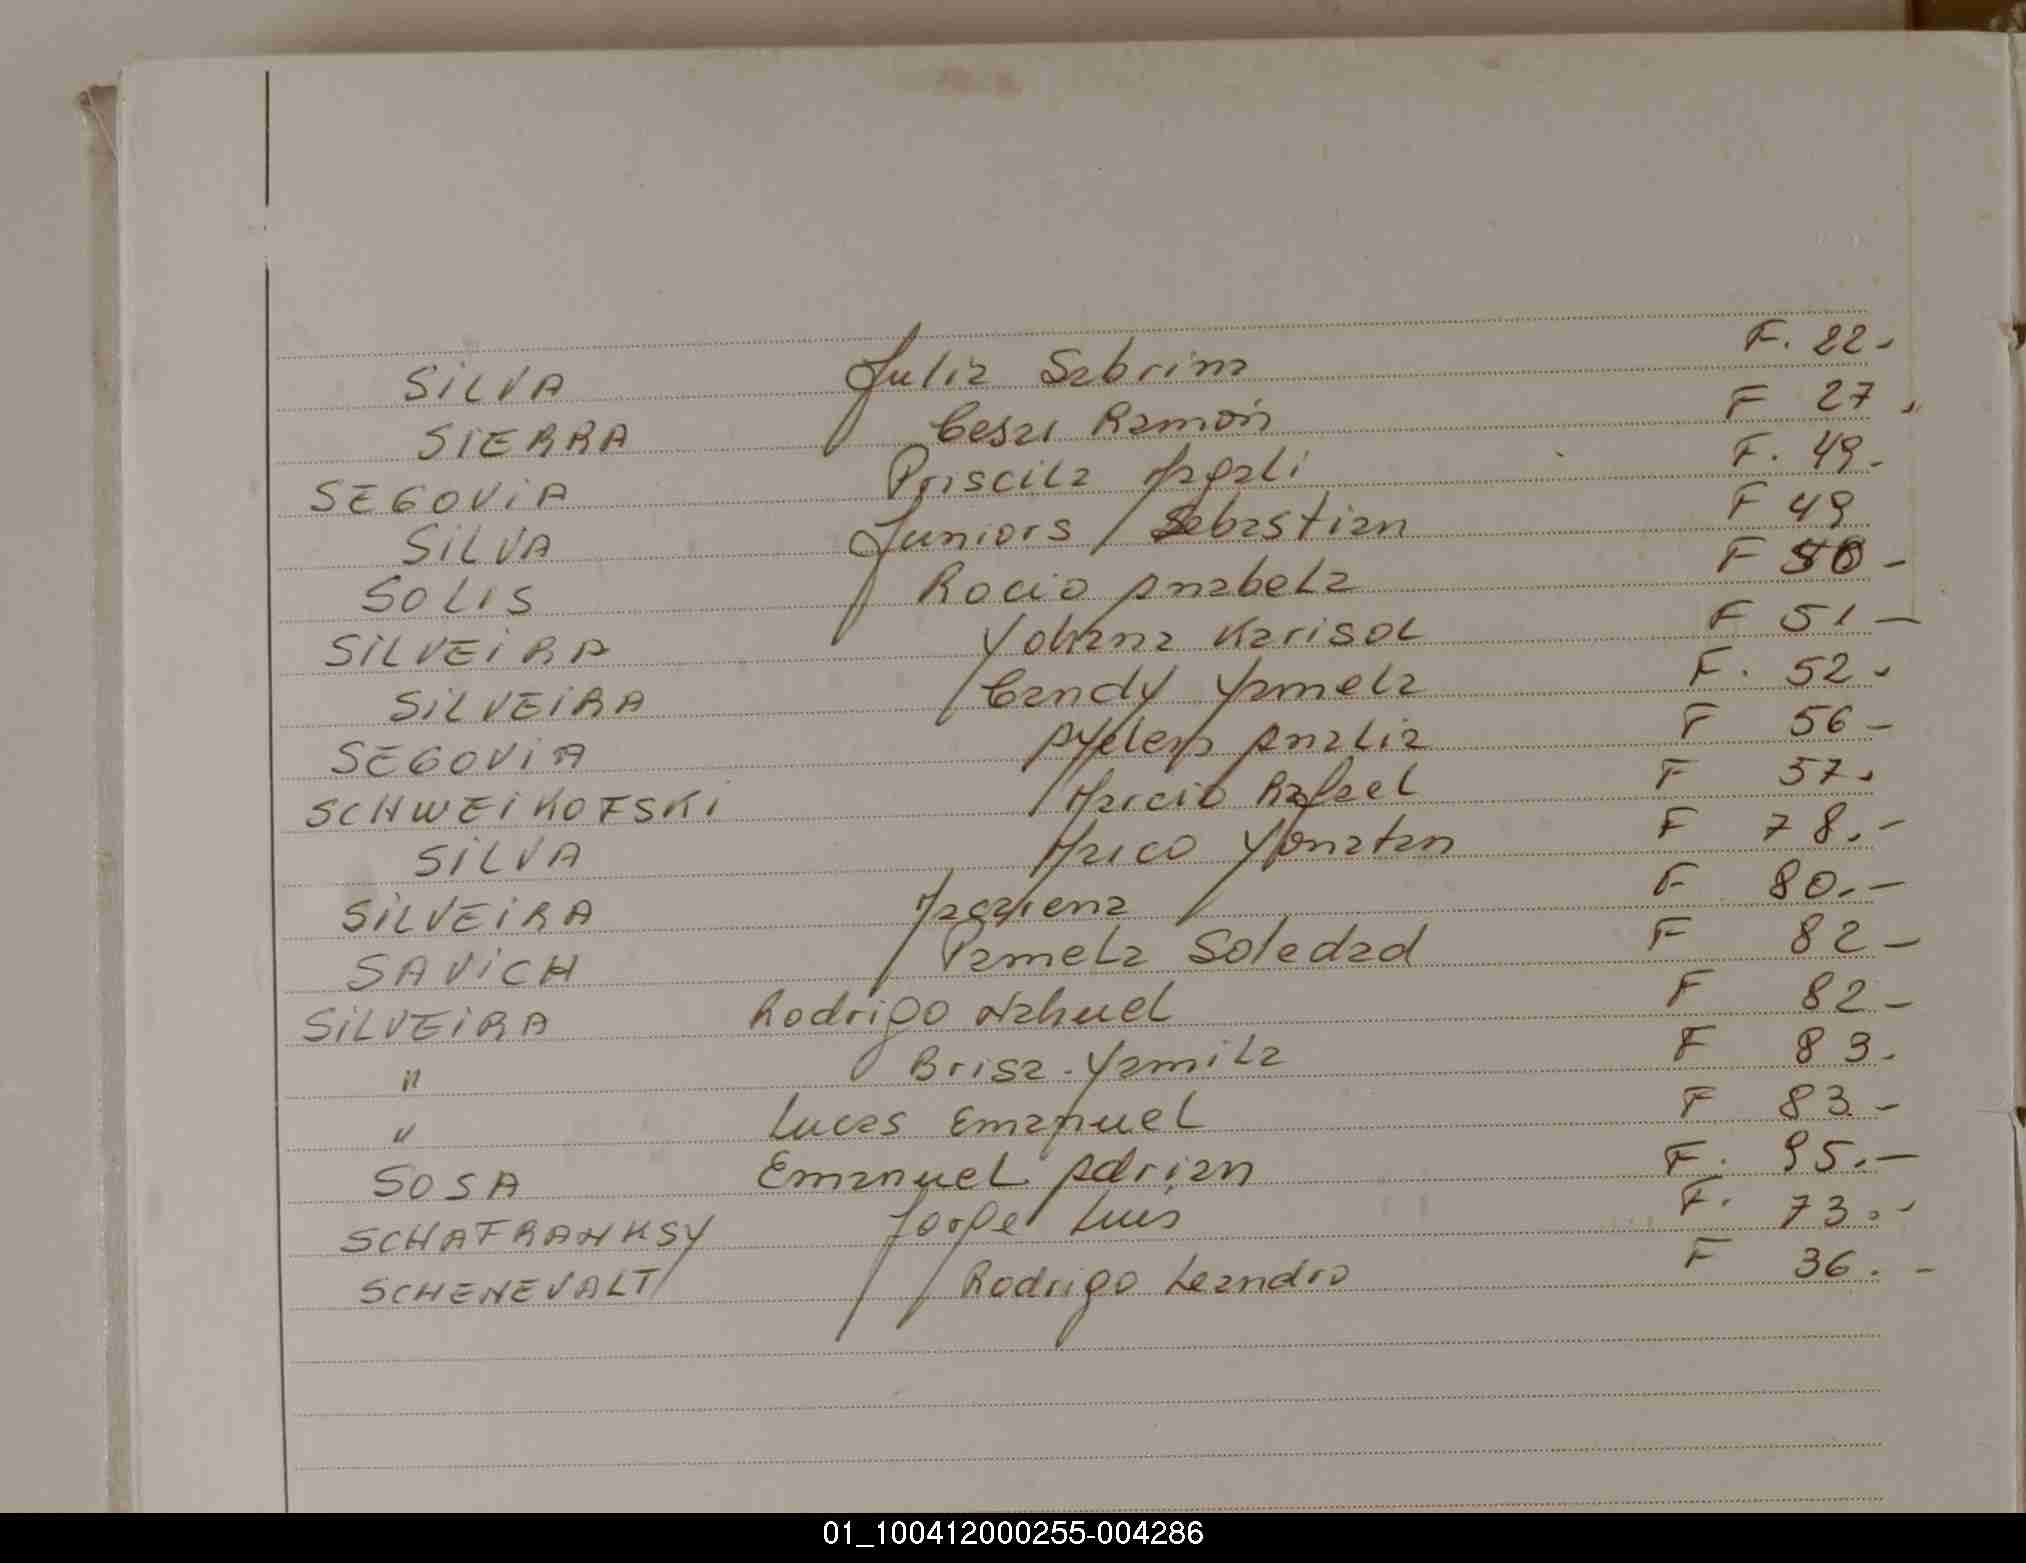 SILVA Julia Sabrina F. 22-
SIERRA Cesar Ramón F 27
SEGOVIA Priscila Magali F. 49-
SILVA Juniors Sebastian F 49
SOLIS Rocio Anabela F 50-
SILVEIRA Yohana Marisol F 51-
SILVEIRA Candy Yamela F. 52-
SEGOVIA Analia F 56-
SCHWEIKOFSKI Marcio Rafael F 57.
SILVA Marco Yonatan F 78.-
SILVEIRA F 80.-
SAVICH Pamela Soledad F 82-
SILVEIRA Rodrigo Nahuel F 82-
" Brisa Yamila F 83-
" Lucas Emanuel F 83-
SOSA Emanuel Adrian F. 95.-
SCHAFRANKSY Jorge Luis F. 73.-
SCHENEVALT Rodrigo Leandro F 36.-
01_100412000255-004286